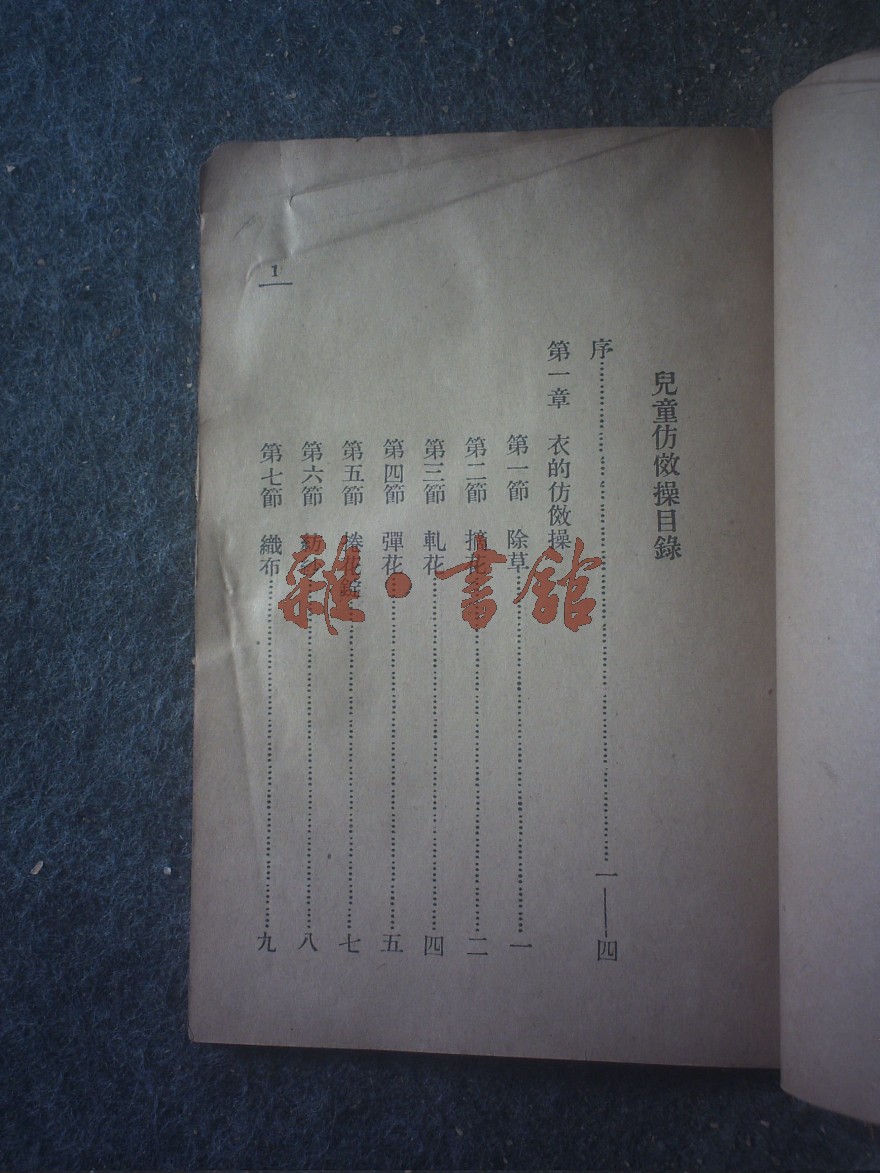 兒童仿傚操目錄
序……一——四
第一章 衣的仿傚操
第一節 除草……一
第二節 摘花……二
第三節 軋花……四
第四節 彈花……五
第五節 捲花錠……七
第六節 紡紗……八
第七節 織布……九
1
雜·書館